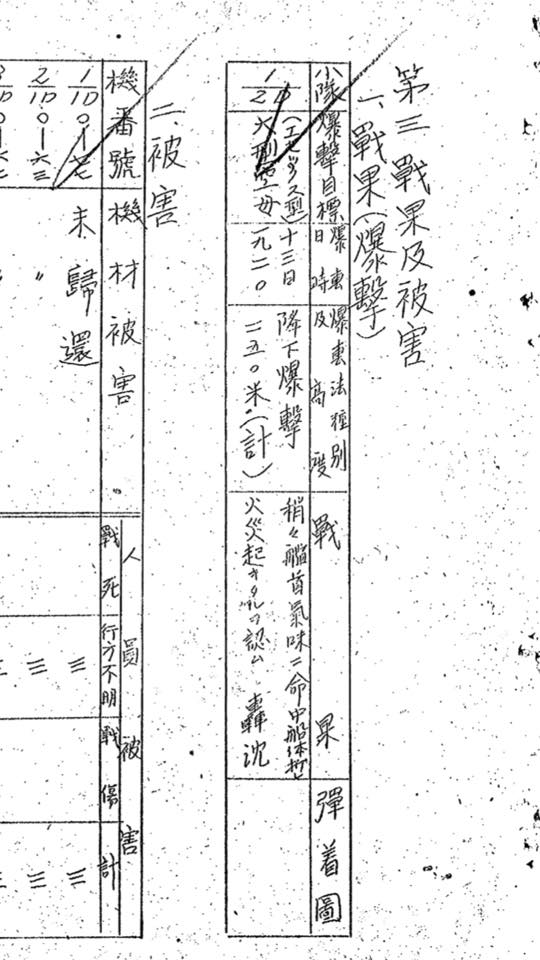 第三 戰果及被害
一、戰果(爆擊)
小隊
爆擊目標
爆擊
日時
爆擊法種別
及高度
戰果
彈着圖
1/2D
(エセックス型)
大型空母
十三日
一九二〇
降下爆擊
二五〇米(計)
稍々艦首氣味ニ命中船体
火災起キタルヲ認ム 轟沈
二、被害
機番號
機材被害
人員被害
戰死
行方不明
戰傷
計
1/1D
未歸還
三
三
2/1D
〃
三
三